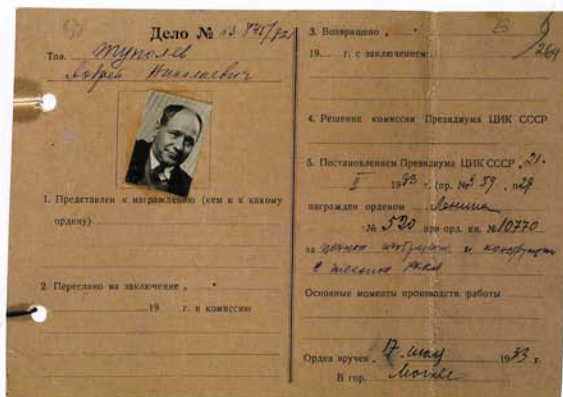 Дело №
Тов. Туполев
Андрей Николаевич
1. Представлен к награждению (кем и к какому
ордену)
2. Переслано на заключение „ "
19 г. в комиссию
3. Возвращено „ "
19... г. с заключением:
264
4. Решение комиссии Президиума ЦИК СССР
5. Постановлением Президиума ЦИК СССР „21"
II 1933 г. (пр. № 59, п. 29
награжден орденом Ленина
№ 520 при орд. кн. № 10770
за ценные изобретен. и конструкции
в технике РККА
Основные моменты производств. работы
Орден вручен „17" июля 1933 г.
В гор. Москве